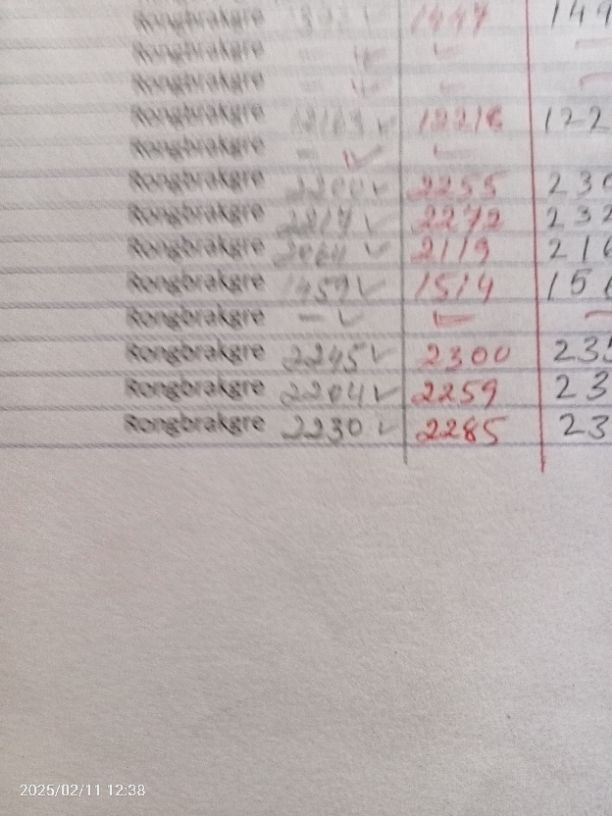 Rongbrakgre 1447 149
Rongbrakgre - ✓ -
Rongbrakgre - ✓ -
Rongbrakgre 12163 ✓ 12216 122
Rongbrakgre - ✓ -
Rongbrakgre 2200 ✓ 2255 230
Rongbrakgre 2217 ✓ 2272 232
Rongbrakgre 2064 ✓ 2119 216
Rongbrakgre 1459 ✓ 1514 156
Rongbrakgre - ✓ - -
Rongbrakgre 2245 ✓ 2300 235
Rongbrakgre 2204 ✓ 2259 23
Rongbrakgre 2230 ✓ 2285 23
2025/02/11 12:38